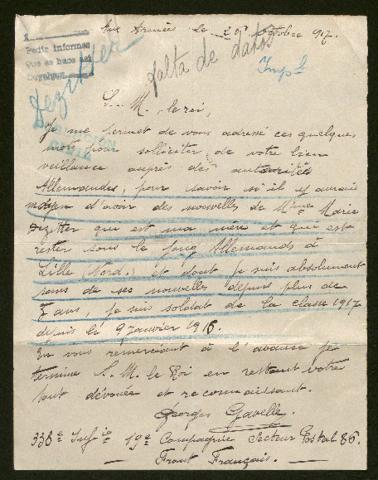 Aux Armées le 20 Octobre 917.
Pedir informes
que se hace así
falta de datos
Dezitter
S. M. le roi,
Je me permet de vous adressé ces quelques
mots pour solliciter de votre bien
veillance auprès des autorités
Allemandes, pour savoir s'il y aurais
moyen d'avoir des nouvelles de Mme Marie
Dezitter qui est ma mère et que est
rester sous le joug Allemands à
Lille (Nord.) et dont je suis absolument
sans de ses nouvelle depuis plus de
ans, je suis soldat de la classe 1917
depuis le 9 janvier 1916.
En vous remerciant à l'avance je
termine S. M. le Roi en restant votre
tout dévouée et reconnaissant.
Georges Gavelle.
338e Infie 19e Compagnie Secteur Postal 86.
— Front Français. —